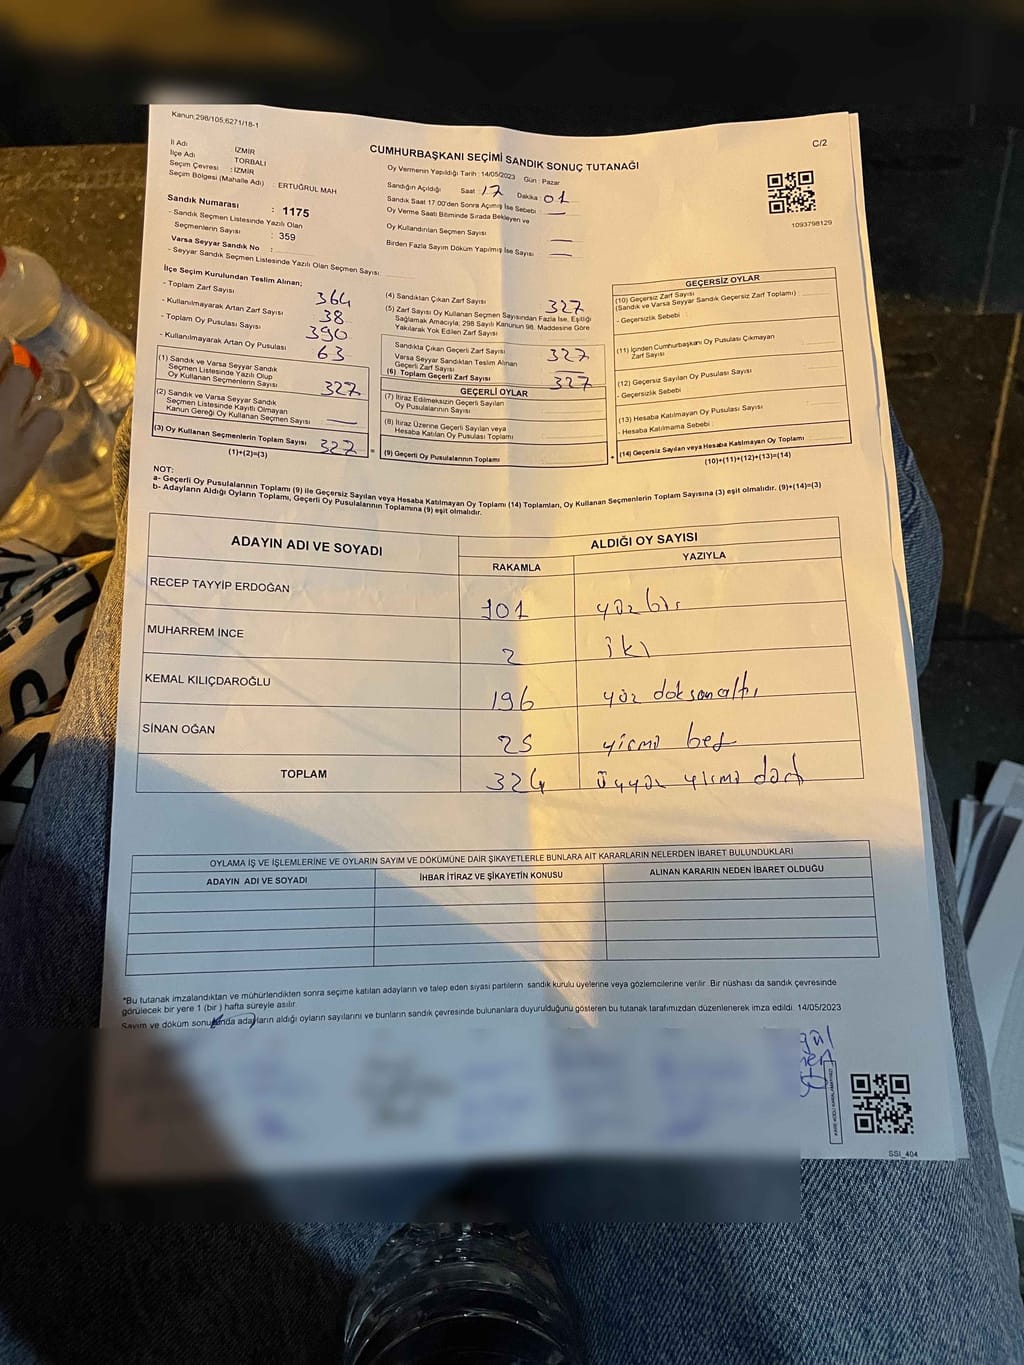 Kanun:298/105,6271/18-1
C/2
CUMHURBAŞKANI SEÇİMİ SANDIK SONUÇ TUTANAĞI
İl Adı : İZMİR
İlçe Adı : TORBALI
Seçim Çevresi : İZMİR
Seçim Bölgesi (Mahalle Adı) : ERTUĞRUL MAH
Sandık Numarası : 1175
- Sandık Seçmen Listesinde Yazılı Olan
Seçmenlerin Sayısı : 359
Varsa Seyyar Sandık No :
- Seyyar Sandık Seçmen Listesinde Yazılı Olan Seçmen Sayısı:
Oy Vermenin Yapıldığı Tarih : 14/05/2023 Gün : Pazar
Sandığın Açıldığı Saat : 17 Dakika : 01
Sandık Saat 17.00'den Sonra Açılmış İse Sebebi : —
Oy Verme Saati Bitiminde Sırada Bekleyen ve
Oy Kullandırılan Seçmen Sayısı —
Birden Fazla Sayım Döküm Yapılmış İse Sayısı : —
1093798129
İlçe Seçim Kurulundan Teslim Alınan;
- Toplam Zarf Sayısı 364
- Kullanılmayarak Artan Zarf Sayısı 38
- Toplam Oy Pusulası Sayısı 390
- Kullanılmayarak Artan Oy Pusulası 63
(1) Sandık ve Varsa Seyyar Sandık
Seçmen Listesinde Yazılı Olup
Oy Kullanan Seçmenlerin Sayısı 327
(2) Sandık ve Varsa Seyyar Sandık
Seçmen Listesinde Kayıtlı Olmayan
Kanun Gereği Oy Kullanan Seçmen Sayısı —
(3) Oy Kullanan Seçmenlerin Toplam Sayısı 327
(1)+(2)=(3)
(4) Sandıktan Çıkan Zarf Sayısı 327
(5) Zarf Sayısı Oy Kullanan Seçmen Sayısından Fazla İse, Eşitliği
Sağlamak Amacıyla; 298 Sayılı Kanunun 98. Maddesine Göre
Yakılarak Yok Edilen Zarf Sayısı
Sandıkta Çıkan Geçerli Zarf Sayısı 327
Varsa Seyyar Sandıktan Teslim Alınan
Geçerli Zarf Sayısı
(6) Toplam Geçerli Zarf Sayısı 327
GEÇERLİ OYLAR
(7) İtiraz Edilmeksizin Geçerli Sayılan
Oy Pusulalarının Sayısı
(8) İtiraz Üzerine Geçerli Sayılan veya
Hesaba Katılan Oy Pusulası Toplamı
= (9) Geçerli Oy Pusulalarının Toplamı
GEÇERSİZ OYLAR
(10) Geçersiz Zarf Sayısı
(Sandık ve Varsa Seyyar Sandık Geçersiz Zarf Toplamı) :
- Geçersizlik Sebebi :
(11) İçinden Cumhurbaşkanı Oy Pusulası Çıkmayan
Zarf Sayısı
(12) Geçersiz Sayılan Oy Pusulası Sayısı
- Geçersizlik Sebebi
(13) Hesaba Katılmayan Oy Pusulası Sayısı
- Hesaba Katılmama Sebebi :
+ (14) Geçersiz Sayılan veya Hesaba Katılmayan Oy Toplamı
(10)+(11)+(12)+(13)=(14)
NOT:
a- Geçerli Oy Pusulalarının Toplamı (9) ile Geçersiz Sayılan veya Hesaba Katılmayan Oy Toplamı (14) Toplamları, Oy Kullanan Seçmenlerin Toplam Sayısına (3) eşit olmalıdır. (9)+(14)=(3)
b- Adayların Aldığı Oyların Toplamı, Geçerli Oy Pusulalarının Toplamına (9) eşit olmalıdır.
ADAYIN ADI VE SOYADI
ALDIĞI OY SAYISI
RAKAMLA YAZIYLA
RECEP TAYYİP ERDOĞAN 101 yüz bir
MUHARREM İNCE 2 iki
KEMAL KILIÇDAROĞLU 196 yüz doksanaltı
SİNAN OĞAN 25 yirmi beş
TOPLAM 324 üçyüz yirmi dört
OYLAMA İŞ VE İŞLEMLERİNE VE OYLARIN SAYIM VE DÖKÜMÜNE DAİR ŞİKAYETLERLE BUNLARA AİT KARARLARIN NELERDEN İBARET BULUNDUKLARI
ADAYIN ADI VE SOYADI
İHBAR İTİRAZ VE ŞİKAYETİN KONUSU
ALINAN KARARIN NEDEN İBARET OLDUĞU
*Bu tutanak imzalandıktan ve mühürlendikten sonra seçime katılan adayların ve talep eden siyasi partilerin sandık kurulu üyelerine veya gözlemcilerine verilir. Bir nüshası da sandık çevresinde
görülecek bir yere 1 (bir ) hafta süreyle asılır.
Sayım ve döküm sonucunda adayların aldığı oyların sayılarını ve bunların sandık çevresinde bulunanlara duyurulduğunu gösteren bu tutanak tarafımızdan düzenlenerek imza edildi. 14/05/2023
SSI_404